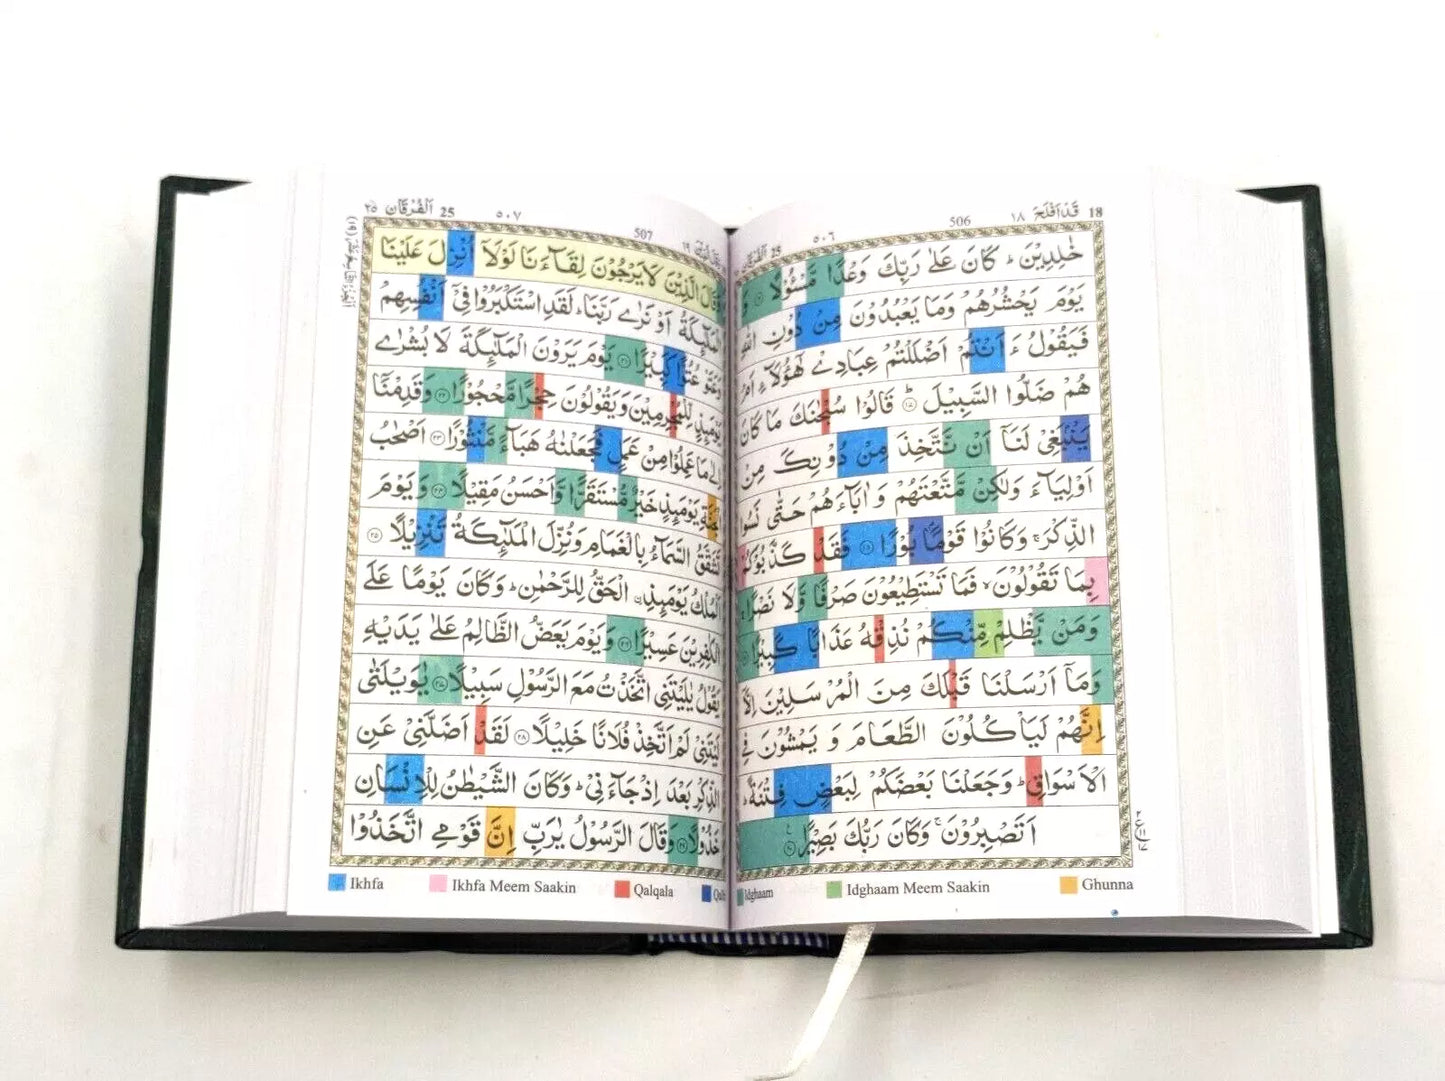 18 قَدْ اَفْلَحَ ١٨ 506 ٥٠٦ 25
خٰلِدِيْنَ ؕ كَانَ عَلٰى رَبِّكَ وَعْدًا مَّسْـُٔوْلًا ۝ وَ
يَوْمَ يَحْشُرُهُمْ وَمَا يَعْبُدُوْنَ مِنْ دُوْنِ اللّٰهِ
فَيَقُوْلُ ءَاَنْتُمْ اَضْلَلْتُمْ عِبَادِيْ هٰٓؤُلَآءِ اَمْ
هُمْ ضَلُّوا السَّبِيْلَ ۝ قَالُوْا سُبْحٰنَكَ مَا كَانَ
يَنْۢبَغِيْ لَنَآ اَنْ نَّتَّخِذَ مِنْ دُوْنِكَ مِنْ
اَوْلِيَآءَ وَلٰكِنْ مَّتَّعْتَهُمْ وَاٰبَآءَهُمْ حَتّٰى نَسُوا
الذِّكْرَ ۚ وَكَانُوْا قَوْمًۢا بُوْرًا ۝١٨ فَقَدْ كَذَّبُوْكُمْ
بِمَا تَقُوْلُوْنَ ۙ فَمَا تَسْتَطِيْعُوْنَ صَرْفًا وَّلَا نَصْرًا ۚ
وَمَنْ يَّظْلِمْ مِّنْكُمْ نُذِقْهُ عَذَابًا كَبِيْرًا ۝
وَمَآ اَرْسَلْنَا قَبْلَكَ مِنَ الْمُرْسَلِيْنَ اِلَّآ
اِنَّهُمْ لَيَاْكُلُوْنَ الطَّعَامَ وَيَمْشُوْنَ فِي
الْاَسْوَاقِ ؕ وَجَعَلْنَا بَعْضَكُمْ لِبَعْضٍ فِتْنَةً ؕ
اَتَصْبِرُوْنَ ۚ وَكَانَ رَبُّكَ بَصِيْرًا ۝٢٠
Idghaam Idghaam Meem Saakin Ghunna
507 ٥٠٧ 25 اَلْفُرْقَان ٢٥
وَقَالَ الَّذِيْنَ لَا يَرْجُوْنَ لِقَآءَنَا لَوْلَآ اُنْزِلَ عَلَيْنَا
الْمَلٰٓئِكَةُ اَوْ نَرٰى رَبَّنَا ؕ لَقَدِ اسْتَكْبَرُوْا فِيْٓ اَنْفُسِهِمْ
وَعَتَوْ عُتُوًّا كَبِيْرًا ۝٢١ يَوْمَ يَرَوْنَ الْمَلٰٓئِكَةَ لَا بُشْرٰى
يَوْمَئِذٍ لِّلْمُجْرِمِيْنَ وَيَقُوْلُوْنَ حِجْرًا مَّحْجُوْرًا ۝٢٢ وَقَدِمْنَآ
اِلٰى مَا عَمِلُوْا مِنْ عَمَلٍ فَجَعَلْنٰهُ هَبَآءً مَّنْثُوْرًا ۝٢٣ اَصْحٰبُ
الْجَنَّةِ يَوْمَئِذٍ خَيْرٌ مُّسْتَقَرًّا وَّاَحْسَنُ مَقِيْلًا ۝٢٤ وَيَوْمَ
تَشَقَّقُ السَّمَآءُ بِالْغَمَامِ وَنُزِّلَ الْمَلٰٓئِكَةُ تَنْزِيْلًا ۝٢٥
اَلْمُلْكُ يَوْمَئِذِ ۨالْحَقُّ لِلرَّحْمٰنِ ؕ وَكَانَ يَوْمًا عَلَى
الْكٰفِرِيْنَ عَسِيْرًا ۝٢٦ وَيَوْمَ يَعَضُّ الظَّالِمُ عَلٰى يَدَيْهِ
يَقُوْلُ يٰلَيْتَنِي اتَّخَذْتُ مَعَ الرَّسُوْلِ سَبِيْلًا ۝٢٧ يٰوَيْلَتٰى
لَيْتَنِيْ لَمْ اَتَّخِذْ فُلَانًا خَلِيْلًا ۝٢٨ لَقَدْ اَضَلَّنِيْ عَنِ
الذِّكْرِ بَعْدَ اِذْ جَآءَنِيْ ؕ وَكَانَ الشَّيْطٰنُ لِلْاِنْسَانِ
خَذُوْلًا ۝٢٩ وَقَالَ الرَّسُوْلُ يٰرَبِّ اِنَّ قَوْمِي اتَّخَذُوْا
Ikhfa Ikhfa Meem Saakin Qalqala